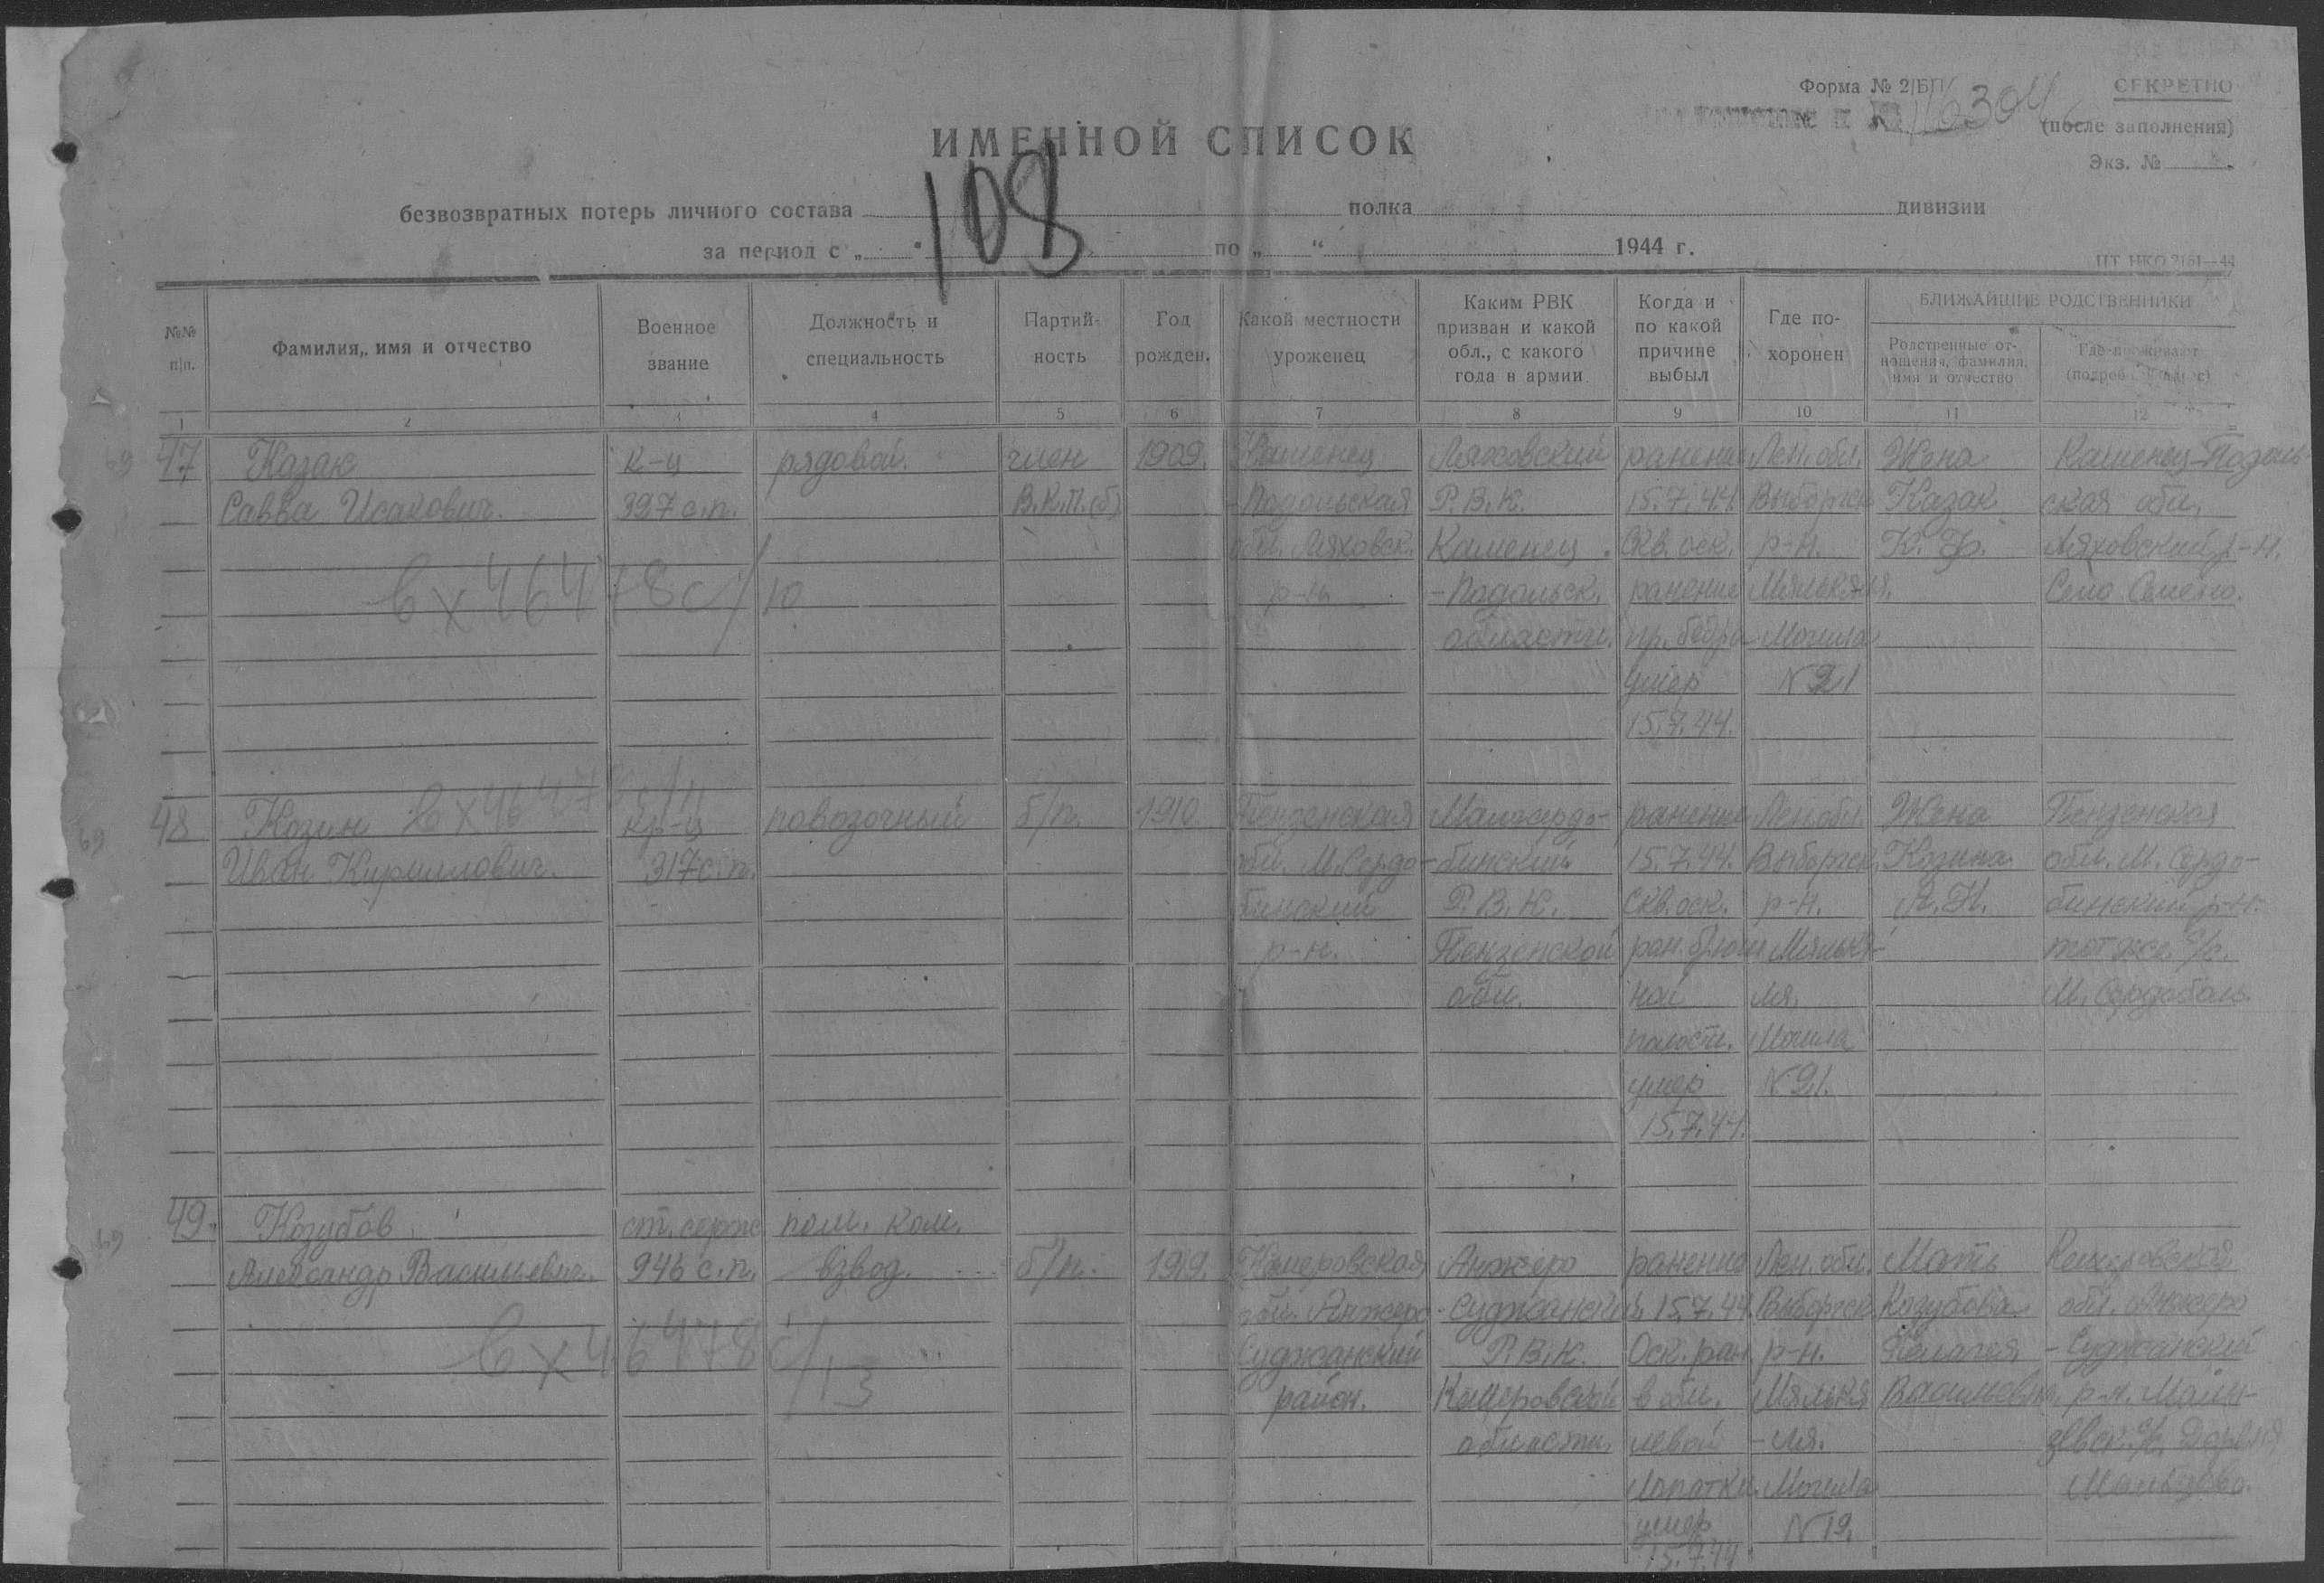 Форма № 2/БП
СЕКРЕТНО
(после заполнения)
Экз. №
ИМЕННОЙ СПИСОК
108
безвозвратных потерь личного состава полка дивизии
за период с „ “ по „ “ 1944 г.
№№ п/п.
Фамилия, имя и отчество
Военное звание
Должность и специальность
Партийность
Год рожден.
Какой местности уроженец
Каким РВК призван и какой обл., с какого года в армии
Когда и по какой причине выбыл
Где похоронен
БЛИЖАЙШИЕ РОДСТВЕННИКИ
Родственные отношения, фамилия, имя и отчество
Где проживают
1 2 3 4 5 6 7 8 9 10 11 12
47 Казак к-ц рядовой. член 1909. Каменец Ляховский ранение Лен. обл. Жена Каменец-Подоль
Савва Исакович. 397 с.п. В.К.П.(б) -Подольская Р.В.К. 15.7.44 Выборгск Казак ская обл.
обл. Ляховск. Каменец Скв. оск. р-н. К. Ф. Ляховский р-н.
вх 46478с/10 р-н -Подольск. ранение Мялькяля. Село
области. пр. бедра Могила
умер N 21
15.7.44.
48 Козин кр-ц повозочный б/п. 1910. Пензенская Малосердо- ранение Лен обл. Жена Пензенская
Иван Кириллович. 317 с.п. обл. М. Сердо- бинский 15.7.44. Выборгск. Козина обл. М. Сердо-
бинский Р.В.К. Скв. оск. р-н. бинский р-н.
р-н. Пензенской ран. брюш Мялькя- тот же с/с.
обл. ной ля. М. Сердоба
полости. Могила
умер N 21.
15.7.44.
49. Козубов ст. серж пом. ком.
Александр Васильевич. 946 с.п. взвод. б/п. 1919. Кемеровская Анжеро ранение Лен. обл. Мать Кемеровская
обл. Анжеро -Суджанский 15.7.44. Выборгск. Козубова обл. Анжеро
вх 46478с/13 Суджанский Р.В.К. Оск. ран р-н. Пелагея -Суджанский
район. Кемеровской в обл. Мялькя Васильевна р-н.
области. левой -ля.
лопатки. Могила
умер N 19.
15.7.44